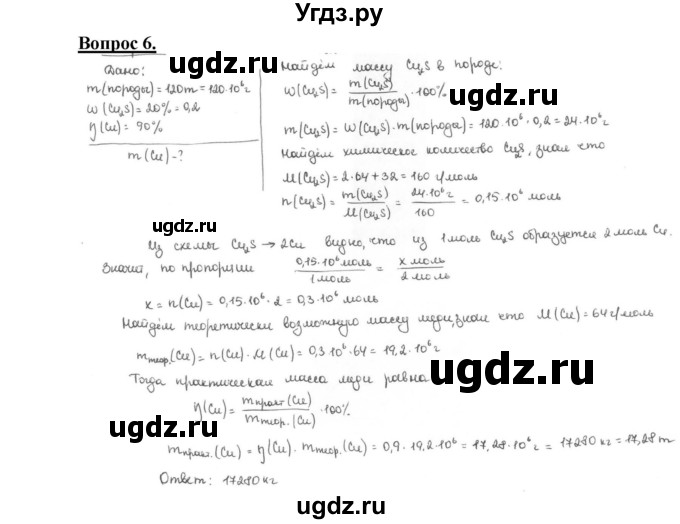 Угдз.ру
Вопрос 6.
Дано:
m(породы)=120т=120·10⁶г
ω(Cu₂S)=20%=0,2
η(Cu)=90%
m(Cu)-?
Найдём массу Cu₂S в породе:
ω(Cu₂S)= m(Cu₂S)/m(породы) ·100%
m(Cu₂S)= ω(Cu₂S)·m(породы)=120·10⁶·0,2=24·10⁶г
Найдём химическое количество Cu₂S, зная что
M(Cu₂S)=2·64+32=160 г/моль
n(Cu₂S)= m(Cu₂S)/M(Cu₂S) = 24·10⁶г/160 = 0,15·10⁶ моль
Из схемы Cu₂S → 2Cu видно, что из 1 моль Cu₂S образуется 2 моль Cu.
Значит, по пропорции 0,15·10⁶моль/1 моль = x моль/2 моль
x = n(Cu)=0,15·10⁶·2=0,3·10⁶моль
Найдём теоретически возможную массу меди, зная что M(Cu)=64г/моль
mтеор.(Cu)= n(Cu)·M(Cu)=0,3·10⁶·64=19,2·10⁶г
Тогда практическая масса меди равна
η(Cu)= mпракт(Cu)/mтеор.(Cu) ·100%
mпракт.(Cu)= η(Cu)·mтеор.(Cu)=0,9·19,2·10⁶=17,28·10⁶г=17280 кг=17,28 т
Ответ: 17280 кг
ugdz.ru
ugdz.ru
ugdz.ru
ugdz.ru
ugdz.ru
ugdz.ru
ugdz.ru
ugdz.ru
ugdz.ru
ugdz.ru
ugdz.ru